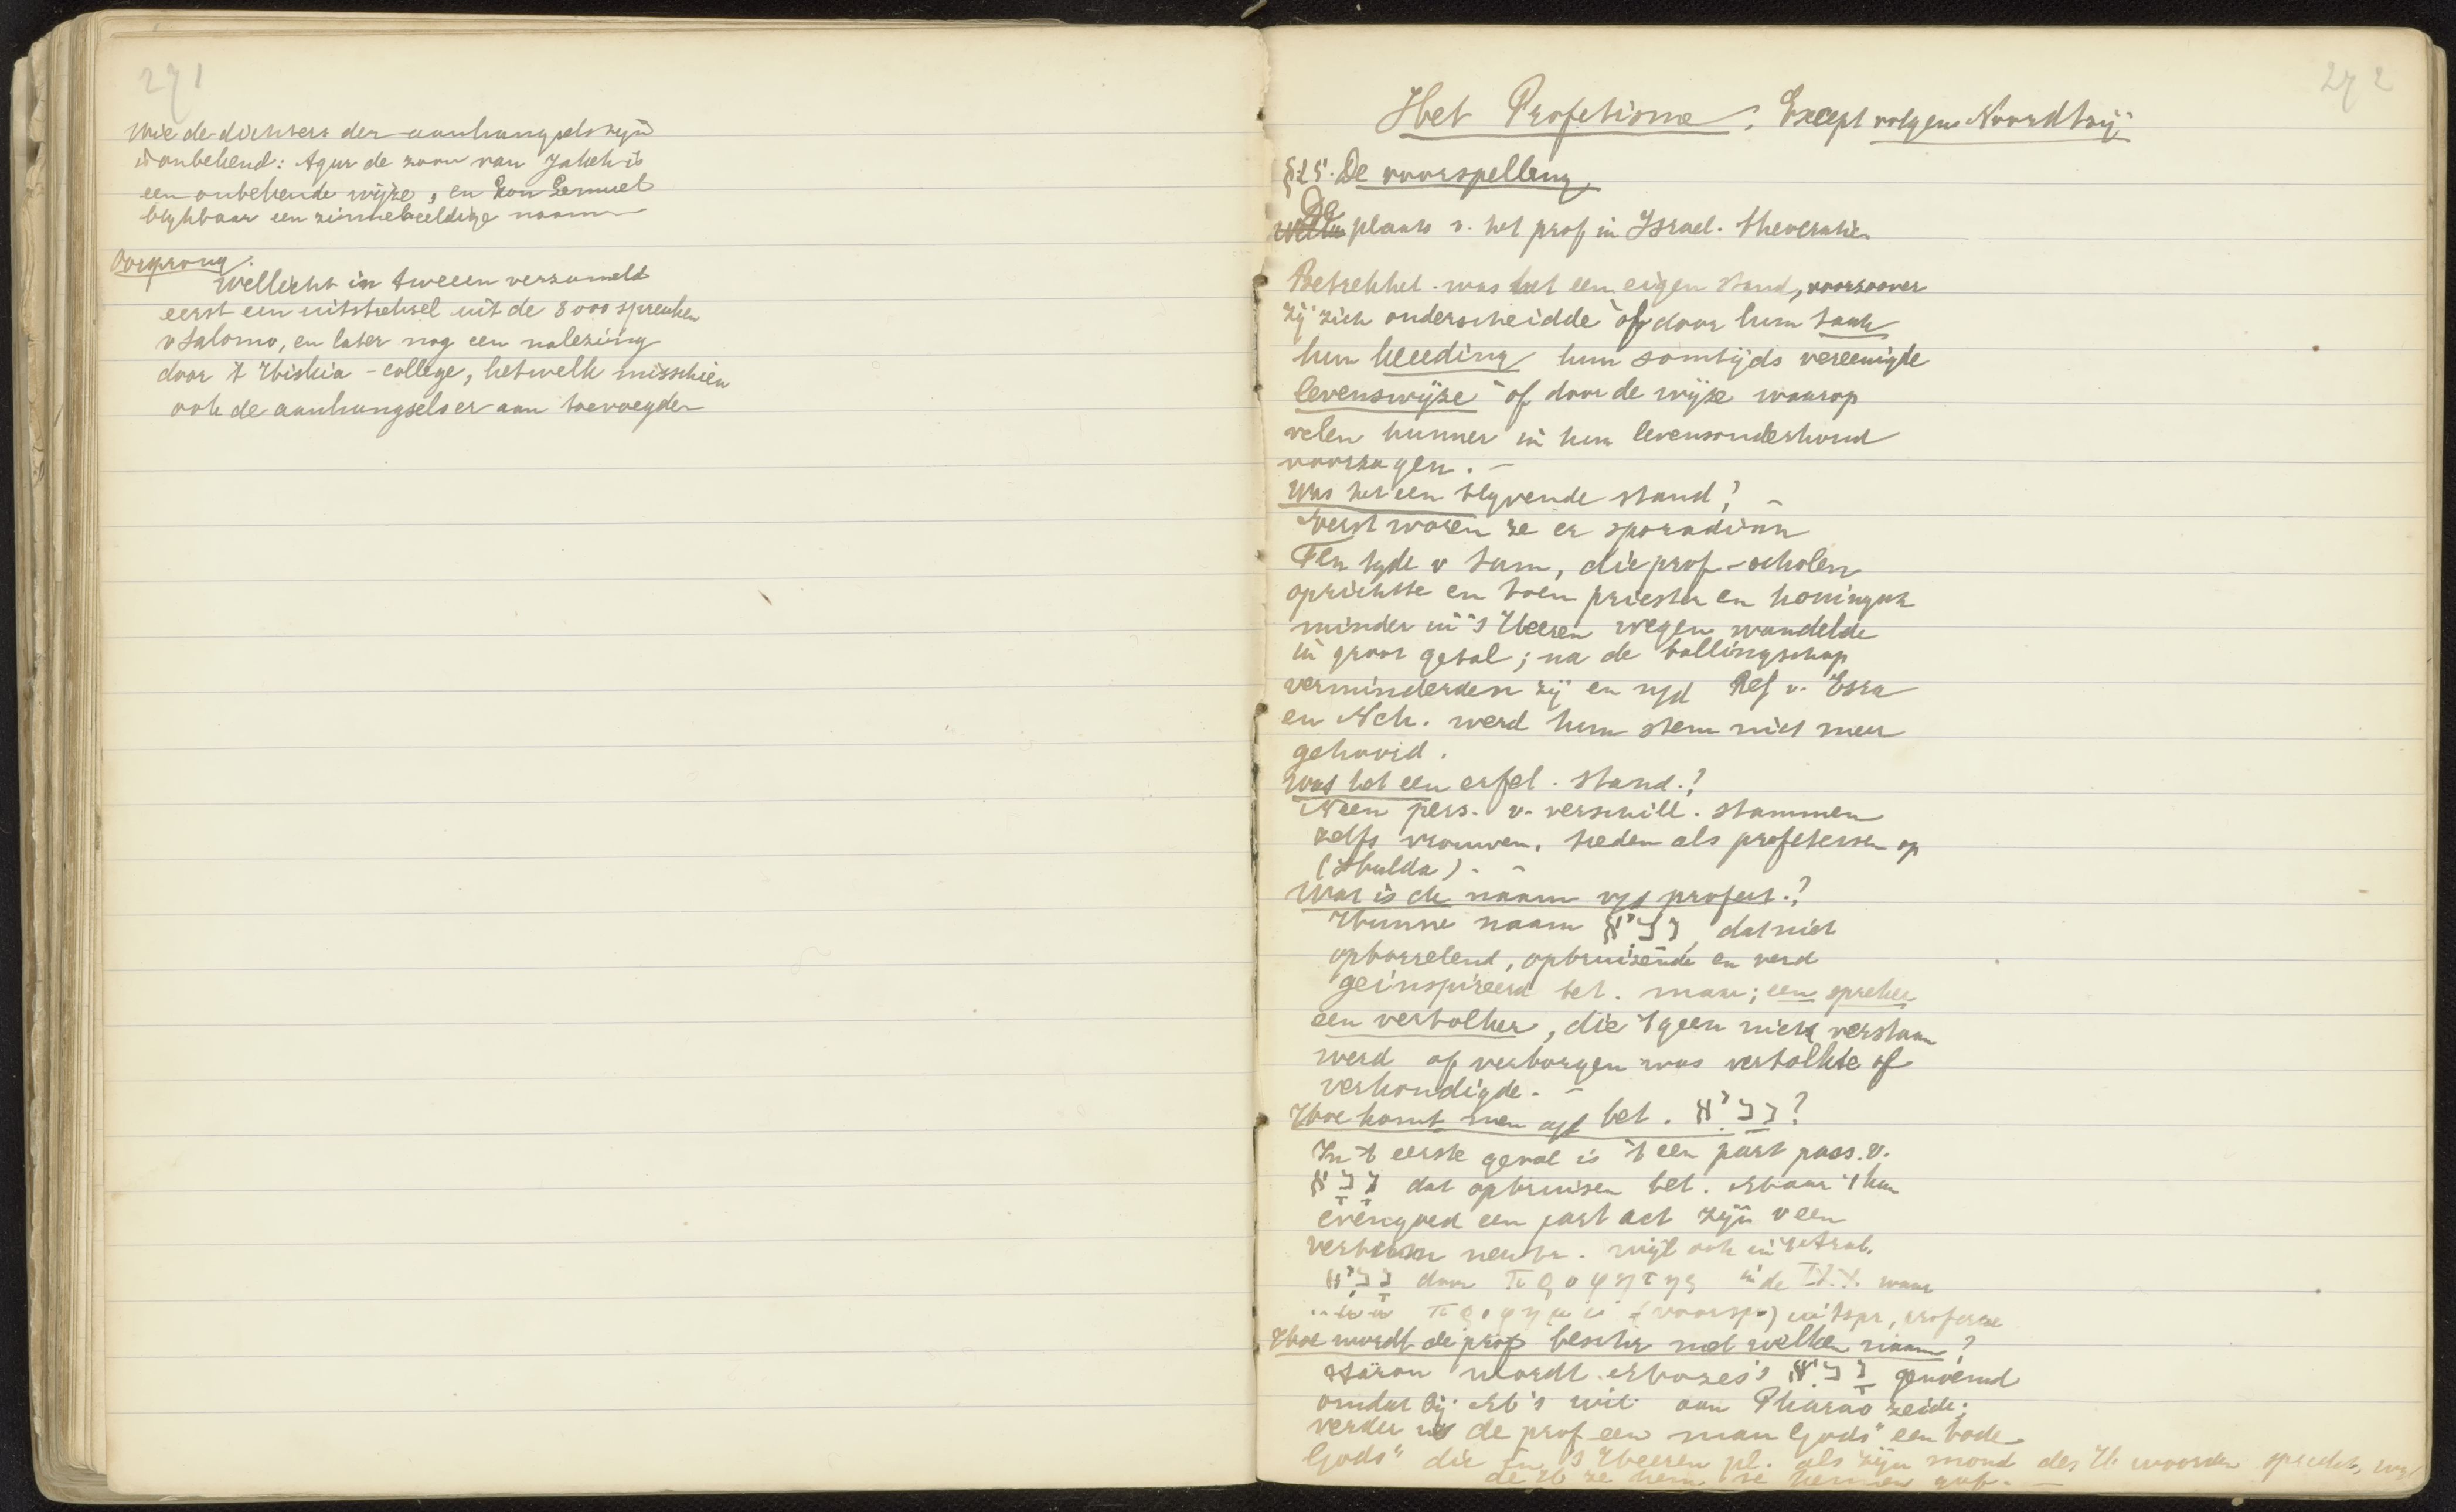 271
Wie de dichters der aanhangsels zijn
is onbekend: Agur de zoon van Jakeh is
een onbekende wijze, en Kon Lemuel
blijkbaar een zinnebeeldige naam
Oorsprong:
Wellicht in tweeen verzameld
eerst een uittreksel uit de 3000 spreuken
v Salomo, en later nog een nalezing
door 't Hiskia-college, hetwelk misschien
ook de aanhangsels er aan toevoegden
272
Het Profetisme. Excerpt volgens Noordtzij
§25. De voorspelling
De plaats v. het prof in Israel. theocratie.
Betrekkel. was het een eigen stand, voorzoover
zij zich onderscheidde òf door hun taak
hun kleeding hun somtijds vereenigde
levenswijze òf door de wijze waarop
velen hunner in hun levensonderhoud
voorzagen. –
Was het een blijvende stand? –
Eerst waren ze er sporadisch
Ten tyde v Sam, die prof-scholen
oprichtte en toen priester en koningen
minder in 's Heeren wegen wandelde
in groot getal; na de ballingschap
verminderden zij en n/d Ref v. Esra
en Neh. werd hun stem niet meer
gehoord.
Was het een erfel. stand.?
Neen pers. v. verschill. stammen
zelfs vrouwen, treden als profetessen op
(Hulda). –
Wat is de naam v/d profeet.?
Hunne naam נביא, dat niet
opborrelend, opbruisende en verd
geinspireerd bet. maar; een spreker
een vertolker, die 't geen niet verstaan
werd of verborgen was vertolkte of
verkondigde. –
Hoe komt men a/d bet. נְבִיא?
In 't eerste geval is 't een part pass. v.
נָבָא dat opbruisen bet. Maar 't kan
evengoed een part act zijn v een
verbum neutr. wijl ook in 't Arab.
נָבִיא door προφητης in de LXX. waar
προφημι (voorsp.) uitspr,
Hoe wordt de prof beschr met welken naam?
Aäron wordt Mozes's נָבִיא genoemd
omdat hij M's wil aan Pharao zeide;
verder is de prof een "man Gods" een "bode
Gods" die in 's Heeren pl. als zijn mond des H. woorden spreekt, wijl
de H ze hem te kennen gaf. –